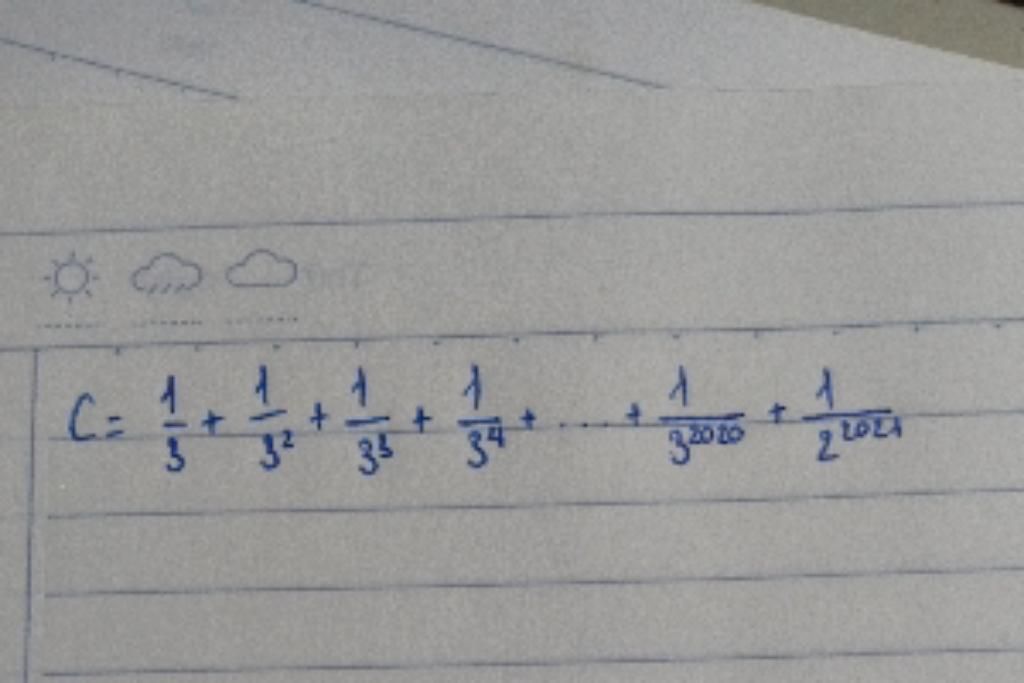 C = 1/3 + 1/3² + 1/3³ + 1/3⁴ + .... + 1/3²⁰²⁰ + 1/2²⁰²¹